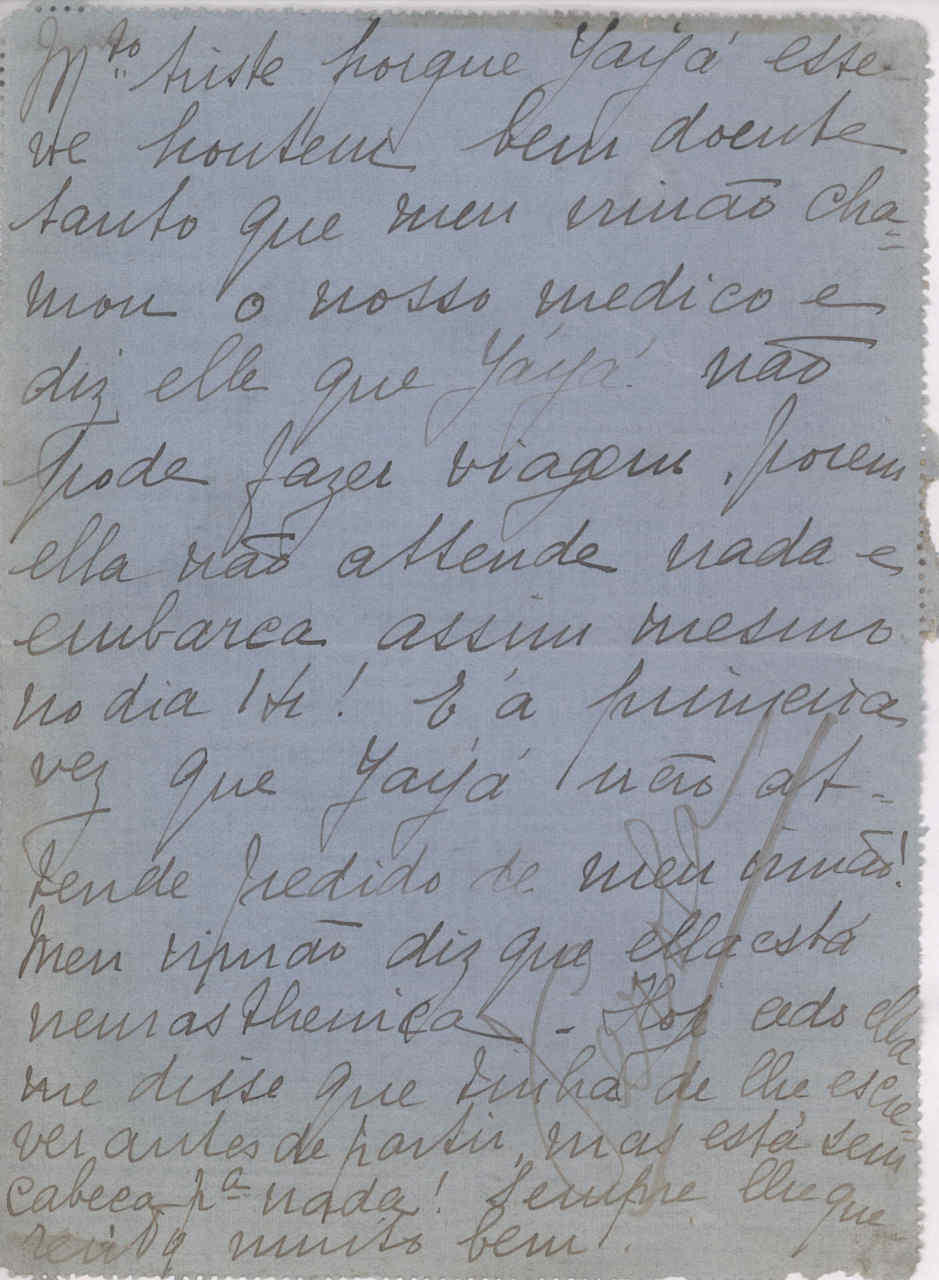 Mto triste porque Yayá este-
ve hontem bem doente
tanto que meu irmão cha-
mou o nosso medico e
diz elle que Yáyá não
pode fazer viagem, porem
ella não attende nada e
embarca assim mesmo
no dia 14! E' a primeira
vez que Yayá não at-
tende pedido de meu irmão!
Meu irmão diz que ella está
neurasthenica - Hoje cedo ella
me disse que tinha de lhe escre-
ver antes de partir, mas está sem
cabeça pa nada! Sempre lhe que
muito bem.